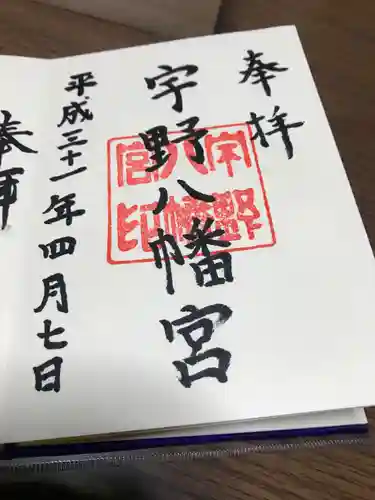 奉拝
宇野八幡宮
宇野
八幡
宮印
平成三十一年四月七日
奉拝